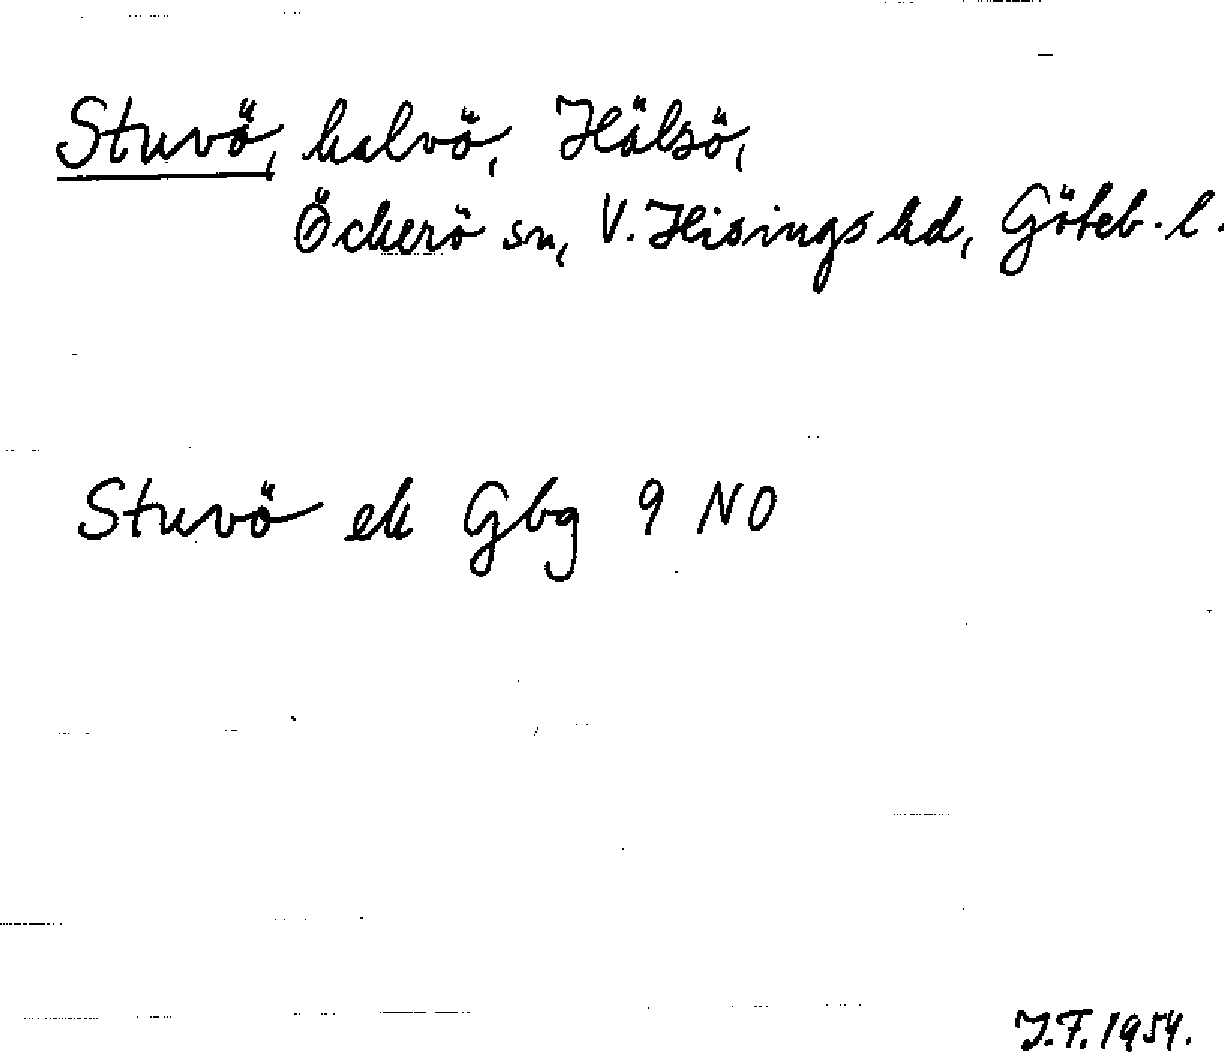 Stuvö, halvö, Hälsö,
Öckerö sn, V. Hisings hd, Göteb. l.
Stuvö ek Gbg 9 NO
J.F. 1954.